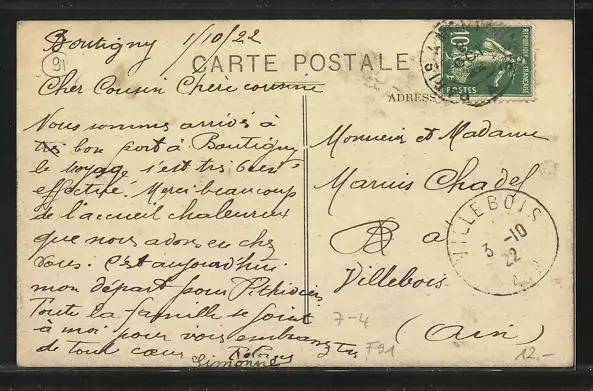 Boutigny 1/10/22
91
CARTE POSTALE
Cher Cousin Chère cousine
ADRESSE
Nous sommes arrivés à
très bon port à Boutigny
le voyage s'est très bien
effectué. Merci beaucoup
de l'accueil chaleureux
que nous avons eu chez
vous. C'est aujourd'hui
mon départ pour Pithiviers
Toute la famille se joint
à moi pour vous embrasser
de tout cœur
Simonne
10c
REPUBLIQUE FRANÇAISE
POSTES
Monsieur et Madame
Marius Chadel
à
Villebois
(Ain)
VILLEBOIS
3 -10
22
7-4
F91
12.-